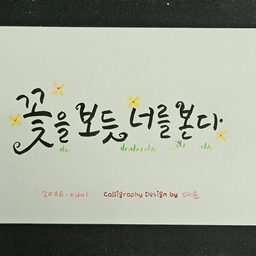 꽃을 보듯 너를 본다.
2026.0401 Calligraphy Design by 다온